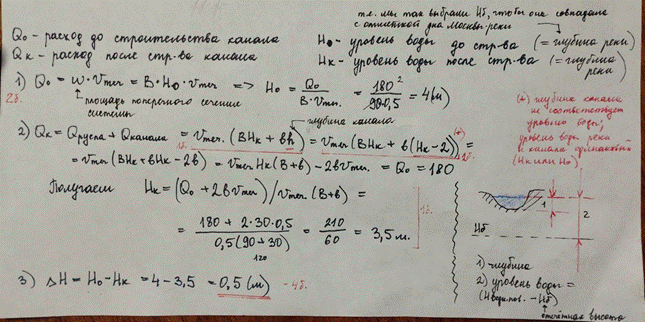 т.е. мы так выбрали Hб, чтобы она совпадала
с отметкой дна Москвы-реки
Q₀ - расход до строительства канала
H₀ - уровень воды до стр-ва (= глубина реки)
Qк - расход после стр-ва канала
Hк - уровень воды после стр-ва (= глубина реки)
1) Q₀ = ω·Vтеч = B·H₀·Vтеч => H₀ = Q₀ / B·Vтеч = 180² / 90·0,5 = 4(м)
2б.
площадь поперечного сечения
системы
глубина канала
2) Qк = Qрусла + Qканала = Vтеч.(BHк + bh) = Vтеч(BHк + b(Hк-2)) =
(*)
1б.
= Vтеч(BHк + bHк - 2b) = Vтеч Hк(B+b) - 2bVтеч = Q₀ = 180
Получаем Hк = (Q₀ + 2bVтеч)/Vтеч(B+b) =
= 180 + 2·30·0,5 / 0,5(90+30) = 210 / 60 = 3,5 м.
120
1б.
3) ΔH = H₀ - Hк = 4 - 3,5 = 0,5 (м) - 4б.
(*) глубина канала
не соответствует
уровню воды,
уровень воды реки
и канала одинаковый
(Hк или H₀)
1
2
Hб
1) - глубина
2) уровень воды =
(Hводн.пов. - Hб)
отметка высоты